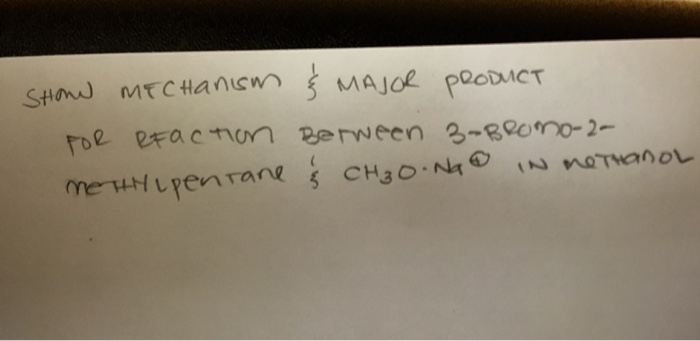 SHOW MECHANISM & MAJOR PRODUCT
FOR REACTION BETWEEN 3-BROMO-2-
METHYLPENTANE & CH3O·Na⊕ IN METHANOL